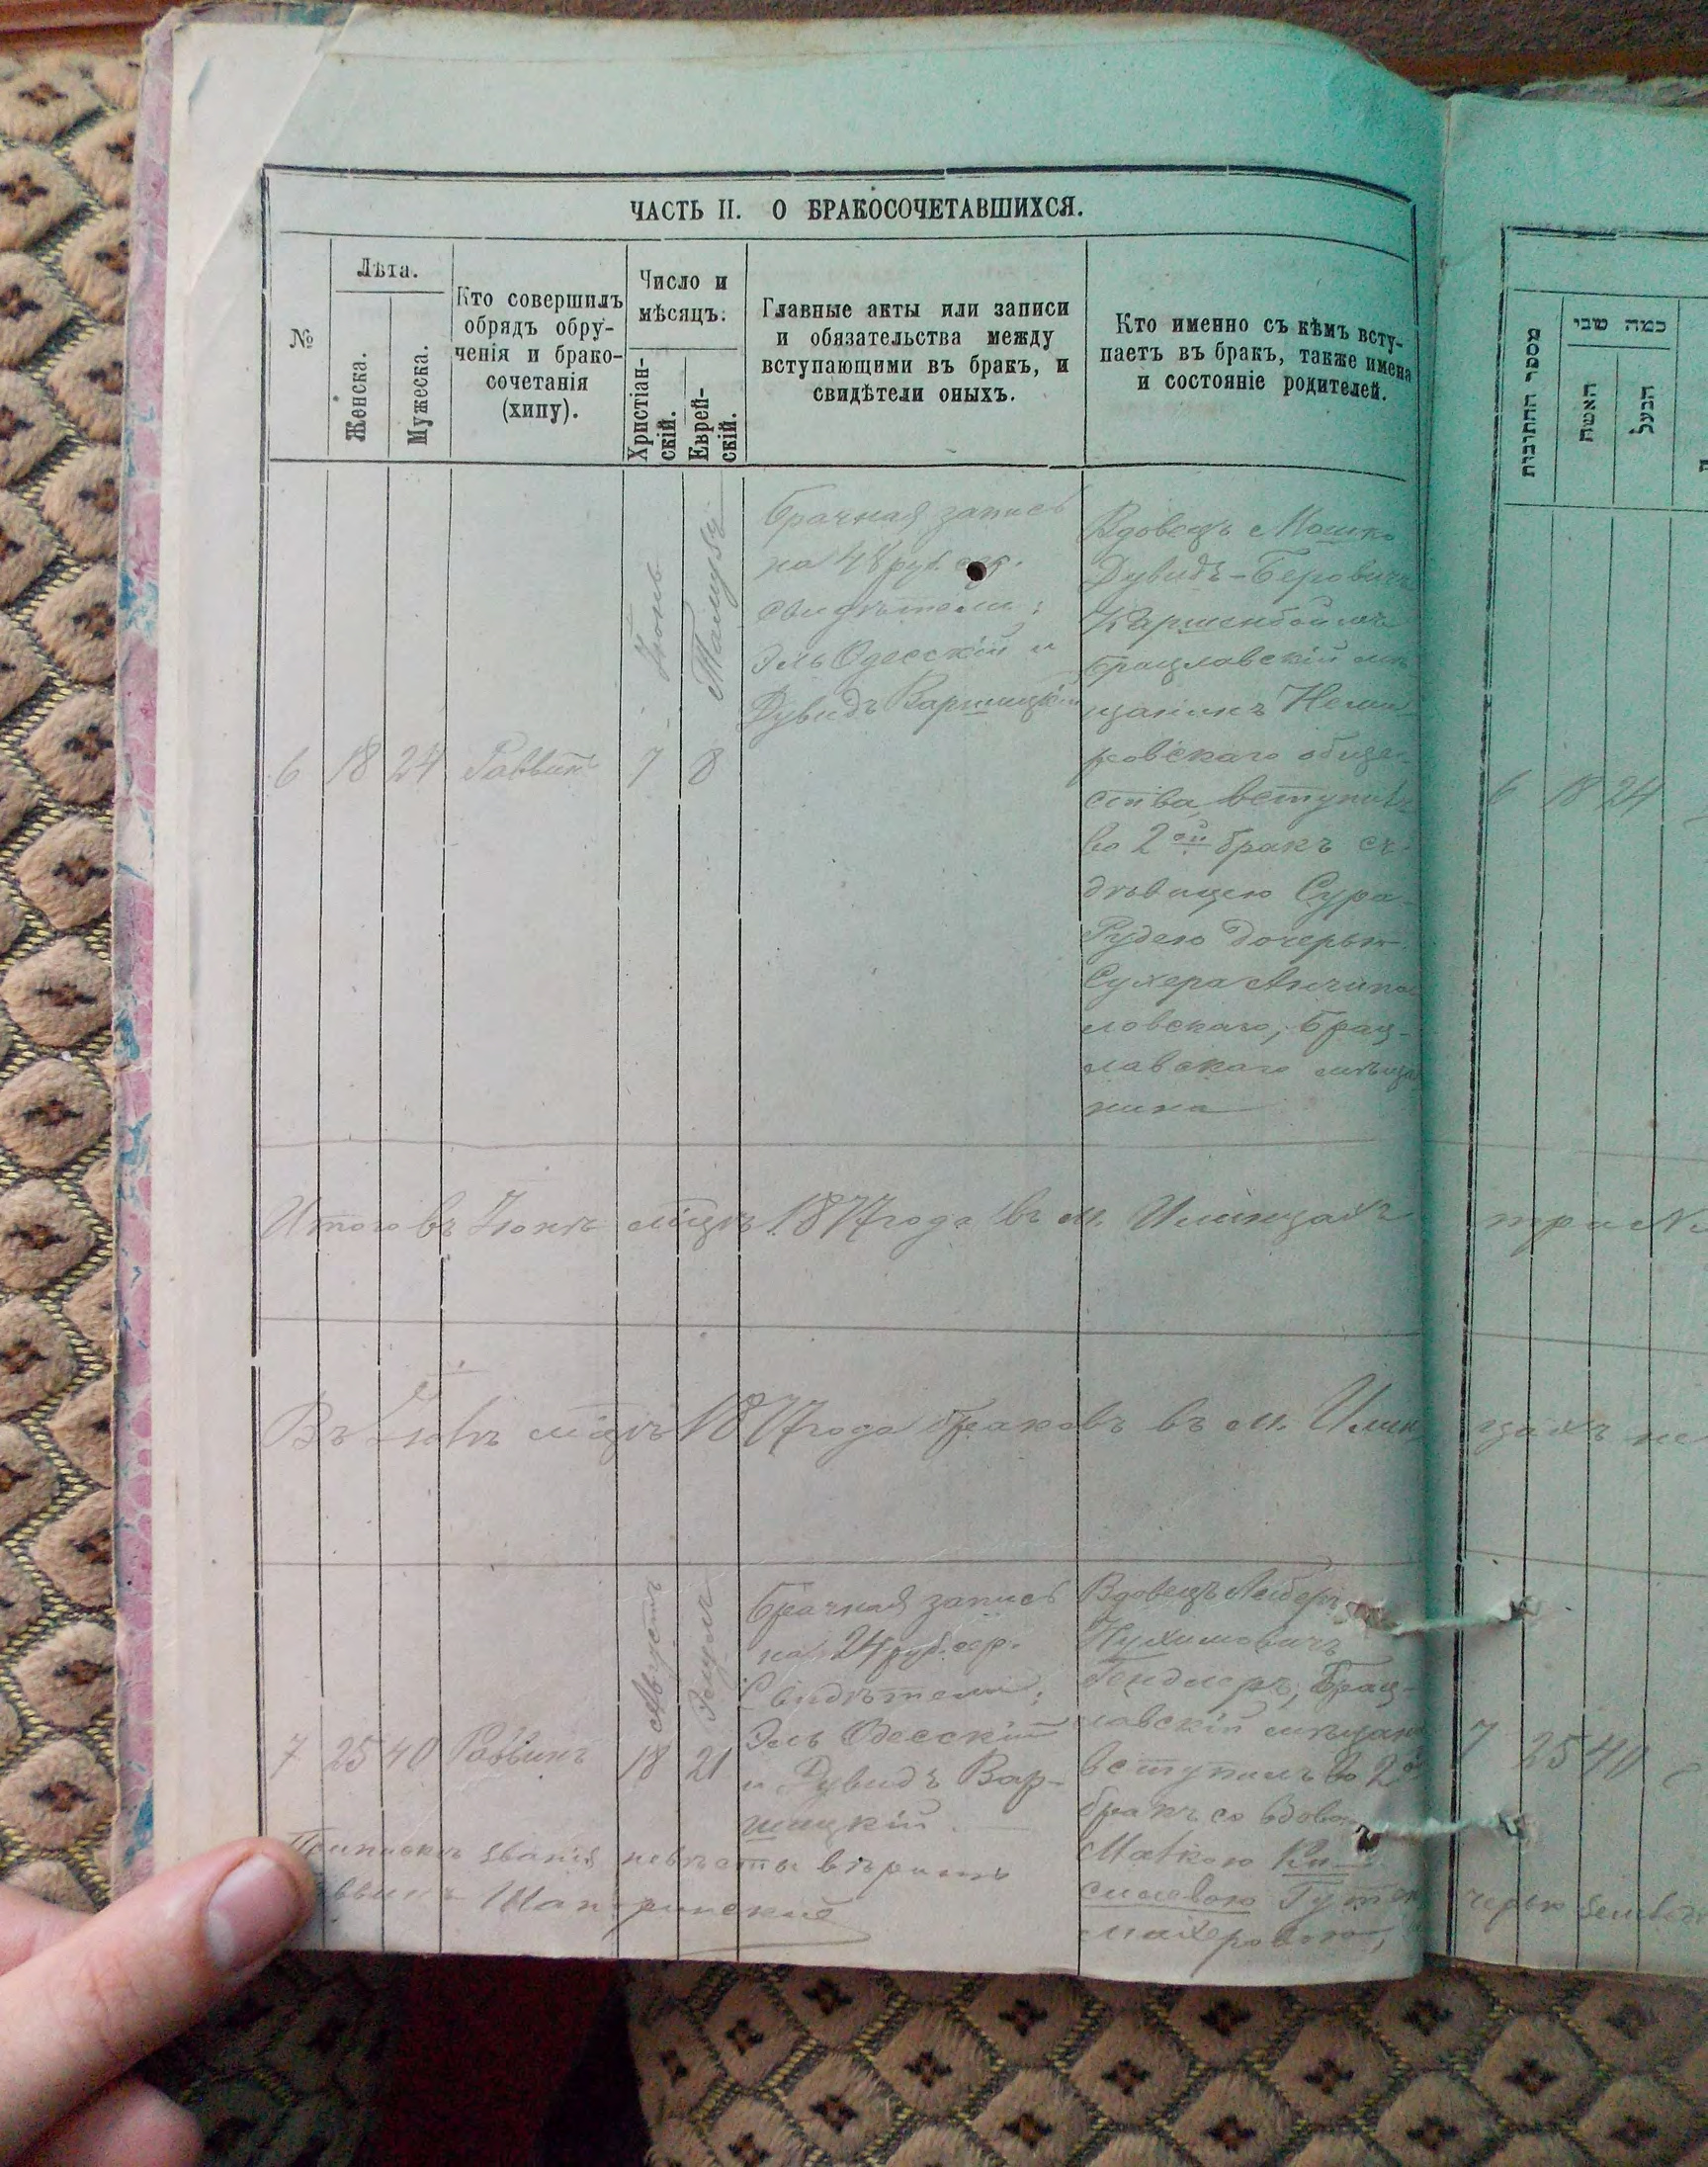 ЧАСТЬ II. О БРАКОСОЧЕТАВШИХСЯ.
№
Лѣта.
Женска.
Мужеска.
Кто совершилъ
обрядъ обру-
ченія и брако-
сочетанія
(хипу).
Число и
мѣсяцъ:
Христіан-
скій.
Еврей-
скій.
Главные акты или записи
и обязательства между
вступающими въ бракъ, и
свидѣтели оныхъ.
Кто именно съ кѣмъ всту-
паетъ въ бракъ, также имена
и состояніе родителей.
6
18
24
Раввинъ
Іюнь
7
Тамузъ
8
Брачная запись
на 48 руб. сер.
свидѣтели:
Эль Одесскій и
Дувидъ Варшицкій
Вдовецъ Мошко
Дувидъ-Беровичъ
Каршенбоймъ
брацлавскій мѣ
щанинъ Неми
ровскаго обще-
ства, вступилъ
во 2ой бракъ съ
дѣвицею Сура
Рудею дочерью
Сухера
ловскаго, Брац-
лавскаго мѣща
нина
Итого въ Іюнѣ мѣцѣ 1877 года въ м. Илинцахъ три
Въ Іюлѣ мѣцѣ 1877 года браковъ въ м. Илин цахъ не
7
25
40
Раввинъ
Августъ
18
Элулъ
21
Брачная запись
на 24 руб. сер.
Свидѣтели:
Эль Одесскій
и Дувидъ Вар-
шицкій.
Вдовецъ Лейберъ
Нухимовичъ
Гендлеръ, Брац-
лавскій мѣщан
вступилъ во 2ой
бракъ со вдово
Маткою Ки-
силевою Гутен
махеровою,
званія невѣсты вѣрить
מספר החתונות
כמה שני
האשה
הבעל
6 18 24
7 25 40